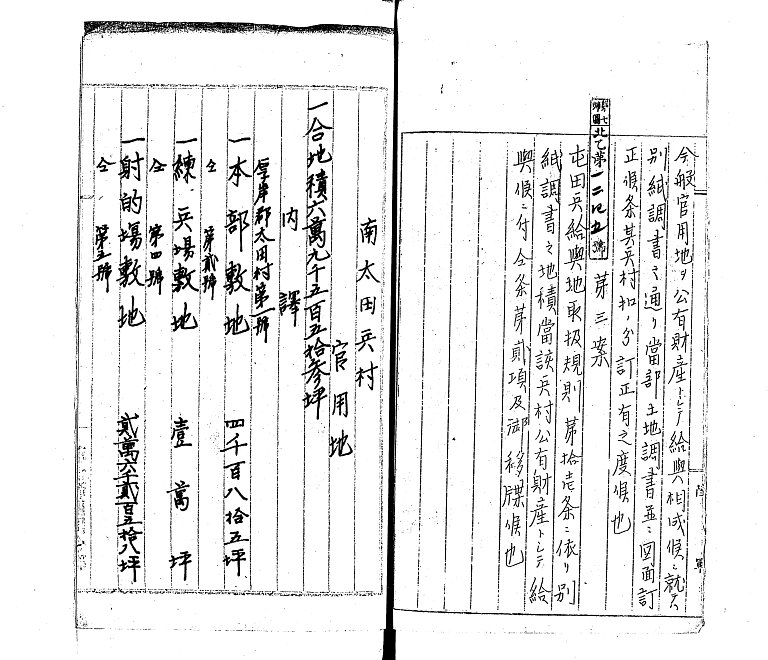 今般官用地ヲ公有財産トシテ給與相成候ニ就テハ
別紙調書之通リ當部土地調書並ニ図面訂
正候条其兵村扣ノ分訂正有之度候也
北乙第一二四五號
第三案
屯田兵給與地取扱規則第拾壱条ニ依リ別
紙調書之地積當該兵村公有財産トシテ給
與候ニ付仝条第貮項及御移牒候也
陸軍
南太田兵村
官用地
一合地積六萬九千五百五拾参坪
内譯
厚岸郡太田村第一號
一本部敷地 四千百八拾五坪
仝 第貮號
一練兵場敷地 壹萬坪
仝 第四號
一射的場敷地 貮萬六千貮百五拾八坪
仝 第五號